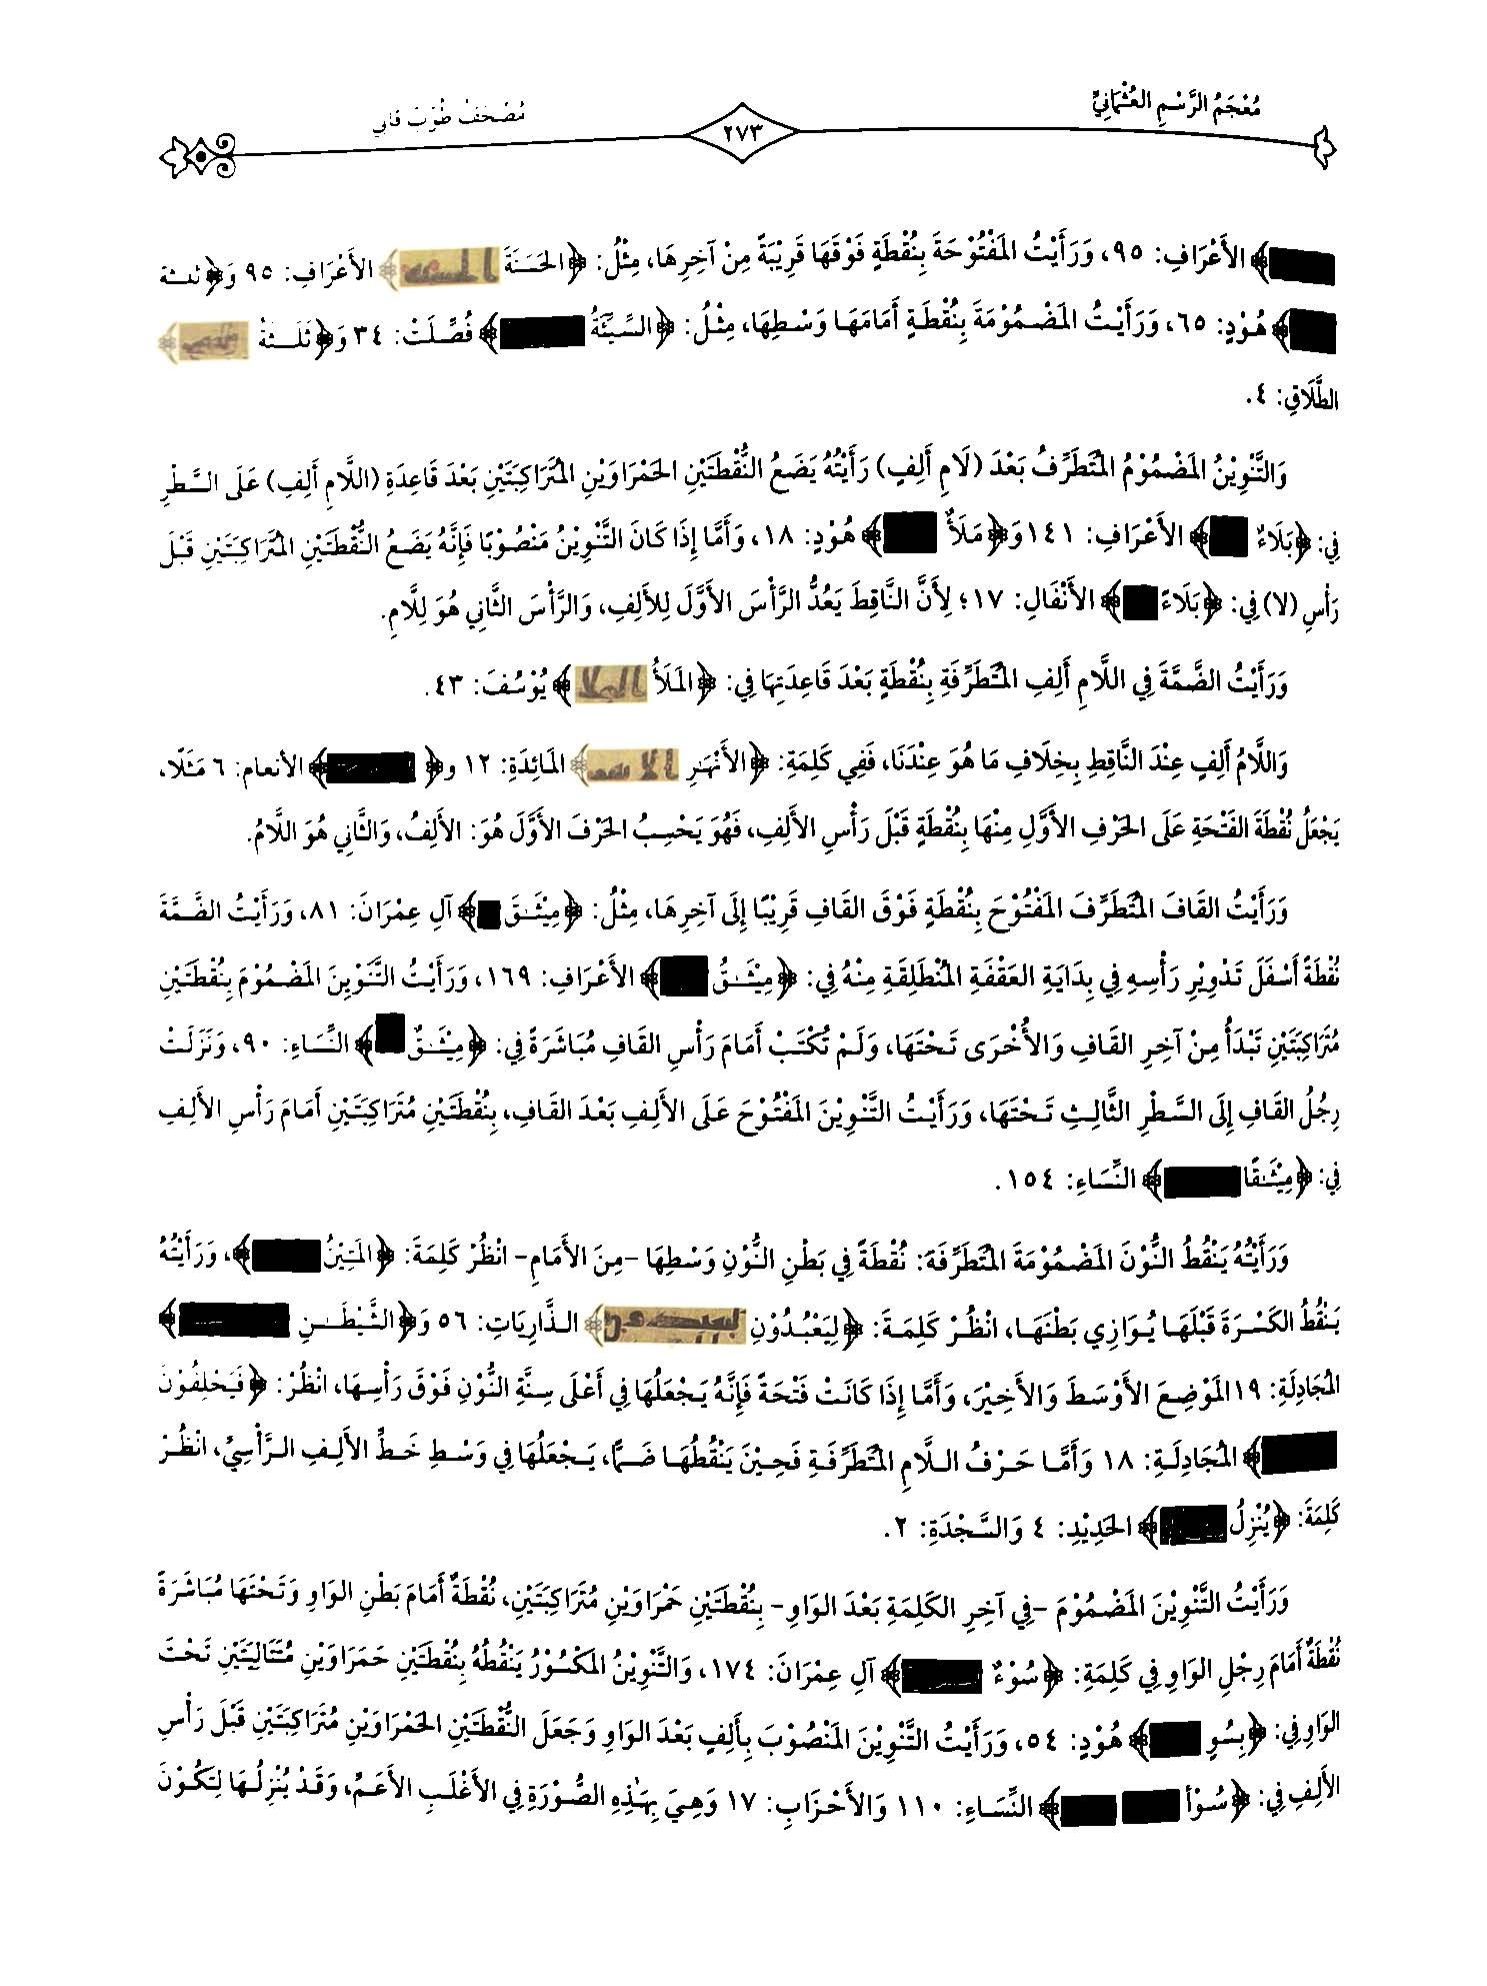 مُعْجَمُ الرَّسْمِ العُثْمَانِيِّ
٢٧٣
مُصْحَفُ طُوْبَ قَابِي
﴾ الأَعْرَافِ: ٩٥، وَرَأَيْتُ المَفْتُوْحَةَ بِنُقْطَةٍ فَوْقَهَا قَرِيْبَةً مِنْ آخِرِهَا، مِثْلُ: ﴿الحَسَنَةَ الحسنه﴾ الأَعْرَافِ: ٩٥ وَ﴿ثلثة
﴾ هُوْدٍ: ٦٥، وَرَأَيْتُ المَضْمُوْمَةَ بِنُقْطَةٍ أَمَامَهَا وَسْطِهَا، مِثْلُ: ﴿السَّيِّئَةُ ﴾ فُصِّلَتْ: ٣٤ وَ﴿ثَلَـٰثَةُ ﴾
الطَّلَاقِ: ٤.
وَالتَّنْوِيْنُ المَضْمُوْمُ المُتَطَرِّفُ بَعْدَ (لَامِ أَلِفٍ) رَأَيْتُهُ يَضَعُ النُّقْطَتَيْنِ الحَمْرَاوَيْنِ المُتَرَاكِبَتَيْنِ بَعْدَ قَاعِدَةِ (اللَّامِ أَلِفِ) عَلَى السَّطْرِ
فِي: ﴿بَلَاءٌ ﴾ الأَعْرَافِ: ١٤١ وَ﴿مَلَأٌ ﴾ هُوْدٍ: ١٨، وَأَمَّا إِذَا كَانَ التَّنْوِيْنُ مَنْصُوْبًا فَإِنَّهُ يَضَعُ النُّقْطَتَيْنِ المُتَرَاكِبَتَيْنِ قَبْلَ
رَأْسِ (لا) فِي: ﴿بَلَاءً ﴾ الأَنْفَالِ: ١٧؛ لِأَنَّ النَّاقِطَ يَعُدُّ الرَّأْسَ الأَوَّلَ لِلأَلِفِ، وَالرَّأْسَ الثَّانِي هُوَ لِلَّامِ.
وَرَأَيْتُ الضَّمَّةَ فِي اللَّامِ أَلِفِ المُتَطَرِّفَةِ بِنُقْطَةٍ بَعْدَ قَاعِدَتِهَا فِي: ﴿المَلَأُ الملا﴾ يُوْسُفَ: ٤٣.
وَاللَّامُ أَلِفٍ عِنْدَ النَّاقِطِ بِخِلَافِ مَا هُوَ عِنْدَنَا، فَفِي كَلِمَةِ: ﴿الأَنْهَـٰرِ ﴾ المَائِدَةِ: ١٢ و﴿ ﴾ الأنعام: ٦ مَثَلًا،
يَجْعَلُ نُقْطَةَ الفَتْحَةِ عَلَى الحَرْفِ الأَوَّلِ مِنْهَا بِنُقْطَةٍ قَبْلَ رَأْسِ الأَلِفِ، فَهُوَ يَحْسِبُ الحَرْفَ الأَوَّلَ هُوَ: الأَلِفُ، وَالثَّانِي هُوَ اللَّامُ.
وَرَأَيْتُ القَافَ المُتَطَرِّفَ المَفْتُوْحَ بِنُقْطَةٍ فَوْقَ القَافِ قَرِيْبًا إِلَى آخِرِهَا، مِثْلُ: ﴿مِيْثَـٰقَ ﴾ آلِ عِمْرَانَ: ٨١، وَرَأَيْتُ الضَّمَّةَ
نُقْطَةً أَسْفَلَ تَدْوِيْرِ رَأْسِهِ فِي بِدَايَةِ العَقْفَةِ المُنْطَلِقَةِ مِنْهُ فِي: ﴿مِيْثَـٰقُ ﴾ الأَعْرَافِ: ١٦٩، وَرَأَيْتُ التَّنْوِيْنَ المَضْمُوْمَ بِنُقْطَتَيْنِ
مُتَرَاكِبَتَيْنِ تَبْدَأُ مِنْ آخِرِ القَافِ وَالأُخْرَى تَحْتَهَا، وَلَمْ تُكْتَبْ أَمَامَ رَأْسِ القَافِ مُبَاشَرَةً فِي: ﴿مِيْثَـٰقٌ ﴾ النِّسَاءِ: ٩٠، وَنَزَلَتْ
رِجْلُ القَافِ إِلَى السَّطْرِ الثَّالِثِ تَحْتَهَا، وَرَأَيْتُ التَّنْوِيْنَ المَفْتُوْحَ عَلَى الأَلِفِ بَعْدَ القَافِ، بِنُقْطَتَيْنِ مُتَرَاكِبَتَيْنِ أَمَامَ رَأْسِ الأَلِفِ
فِي: ﴿مِيْثَـٰقًا ﴾ النِّسَاءِ: ١٥٤.
وَرَأَيْتُهُ يَنْقُطُ النُّوْنَ المَضْمُوْمَةَ المُتَطَرِّفَةَ: نُقْطَةً فِي بَطْنِ النُّوْنِ وَسْطِهَا -مِنَ الأَمَامِ- انْظُرْ كَلِمَةَ: ﴿المَتِيْنُ ﴾، وَرَأَيْتُهُ
يَنْقُطُ الكَسْرَةَ قَبْلَهَا يُوَازِي بَطْنَهَا، انْظُرْ كَلِمَةَ: ﴿لِيَعْبُدُوْنِ ليعبدون﴾ الذَّارِيَاتِ: ٥٦ وَ﴿الشَّيْطَـٰنِ ﴾
المُجَادِلَةِ: ١٩ المَوْضِعَ الأَوْسَطَ وَالأَخِيْرَ، وَأَمَّا إِذَا كَانَتْ فَتْحَةً فَإِنَّهُ يَجْعَلُهَا فِي أَعْلَى سِنَّةِ النُّوْنِ فَوْقَ رَأْسِهَا، انْظُرْ: ﴿فَيَحْلِفُوْنَ
﴾ المُجَادِلَةِ: ١٨ وَأَمَّا حَرْفُ اللَّامِ المُتَطَرِّفَةِ فَحِيْنَ يَنْقُطُهَا ضَمًّا، يَجْعَلُهَا فِي وَسْطِ خَطِّ الأَلِفِ الرَّأْسِيِّ، انْظُرْ
كَلِمَةَ: ﴿يُنْزِلُ ﴾ الحَدِيْدِ: ٤ وَالسَّجْدَةِ: ٢.
وَرَأَيْتُ التَّنْوِيْنَ المَضْمُوْمَ -فِي آخِرِ الكَلِمَةِ بَعْدَ الوَاوِ- بِنُقْطَتَيْنِ حَمْرَاوَيْنِ مُتَرَاكِبَتَيْنِ، نُقْطَةٌ أَمَامَ بَطْنِ الوَاوِ وَتَحْتَهَا مُبَاشَرَةً
نُقْطَةٌ أَمَامَ رِجْلِ الوَاوِ فِي كَلِمَةِ: ﴿سُوْءٌ ﴾ آلِ عِمْرَانَ: ١٧٤، وَالتَّنْوِيْنُ المَكْسُوْرُ يَنْقُطُهُ بِنُقْطَتَيْنِ حَمْرَاوَيْنِ مُتَتَالِيَتَيْنِ تَحْتَ
الوَاوِ فِي: ﴿بِسُوٍ ﴾ هُوْدٍ: ٥٤، وَرَأَيْتُ التَّنْوِيْنَ المَنْصُوْبَ بِأَلِفٍ بَعْدَ الوَاوِ وَجَعَلَ النُّقْطَتَيْنِ الحَمْرَاوَيْنِ مُتَرَاكِبَتَيْنِ قَبْلَ رَأْسِ
الأَلِفِ فِي: ﴿سُوْأ ﴾ النِّسَاءِ: ١١٠ وَالأَحْزَابِ: ١٧ وَهِيَ بِهَـٰذِهِ الصُّوْرَةِ فِي الأَغْلَبِ الأَعَمِّ، وَقَدْ يُنْزِلُهَا لِتَكُوْنَ